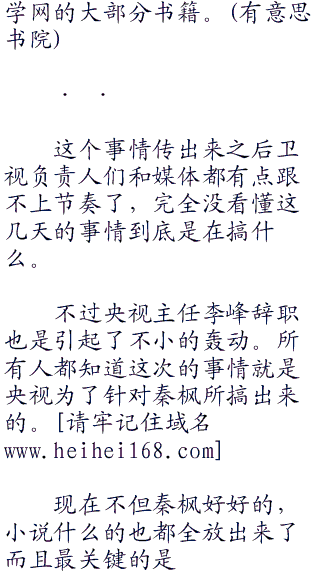 学网的大部分书籍。(有意思
书院)
． ．
这个事情传出来之后卫
视负责人们和媒体都有点跟
不上节奏了，完全没看懂这
几天的事情到底是在搞什
么。
不过央视主任李峰辞职
也是引起了不小的轰动。所
有人都知道这次的事情就是
央视为了针对秦枫所搞出来
的。[请牢记住域名
www.heihei168.com]
现在不但秦枫好好的，
小说什么的也都全放出来了
而且最关键的是